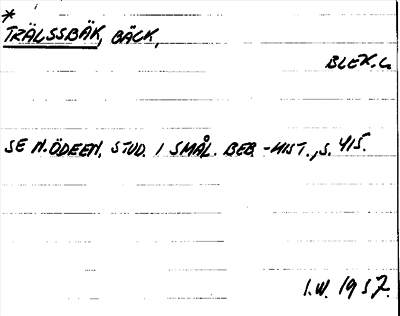 *
TRÄLSSBÄK, BÄCK,
BLEK. L.
SE N. ÖDEEN, STUD. I SMÅL. BEB.-HIST., S. 415.
I.W. 1957.